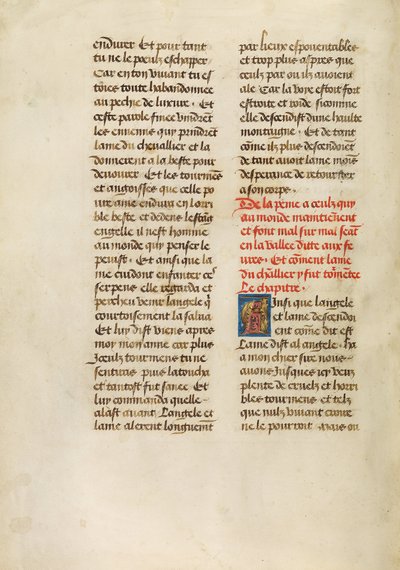 endurer Et pour tant
tu ne le pœulz eschapper
Car en ton viuant tu es
toies toute habandonnee
au pechie de luxure · Et
ceste parole finee vindrẽt
les ennemis quy prindrẽt
lame du cheuallier et la
donnerent a la beste pour
deuourer · Et les tourmẽs
et angoisses que celle po
ure ame endura en lorri
ble beste et dedens lestãg
engelle il nest homme
au monde quy penser le
peuist · Et ainsi que la
me cuidoit enfanter ces
serpens elle regarda et
percheu venir langele q̃
courtoisement la salua
Et luy dist viens apres
moy mon amie car plus
Jceulz tourmens tu ne
sentiras puis la toucha
et tantost fut sanee Et
luy commanda quelle
alast auant Langele et
lame alerent longuemẽt
par lieux espouentables
et trop plus aspres que
ceulz par ou ilz auoient
ale Car la voye estoit fort
estroite et roide si comme
elle descendist dune haulte
montaigne · Et de tant
cõme ilz plus descendoiẽt
de tant auoit lame mois
desperance de retourner
a son corps ·
De la peine a ceulz quy
au monde maintiẽnent
et font mal sur mal seãt
en la vallee ditte aux fe
ures · Et cõment lame
du chlier y fut tõmẽtee
Le chapitre ·
Ainsi que langele
et lame descendoi
ent cõme dit est
Lame dist al angele · ha
a mon chier sire nous
auons Jusques icy veu
plente de cruelz et horri
bles tourmens et telz
que nulz viuant croire
ne le pourroit mais ou